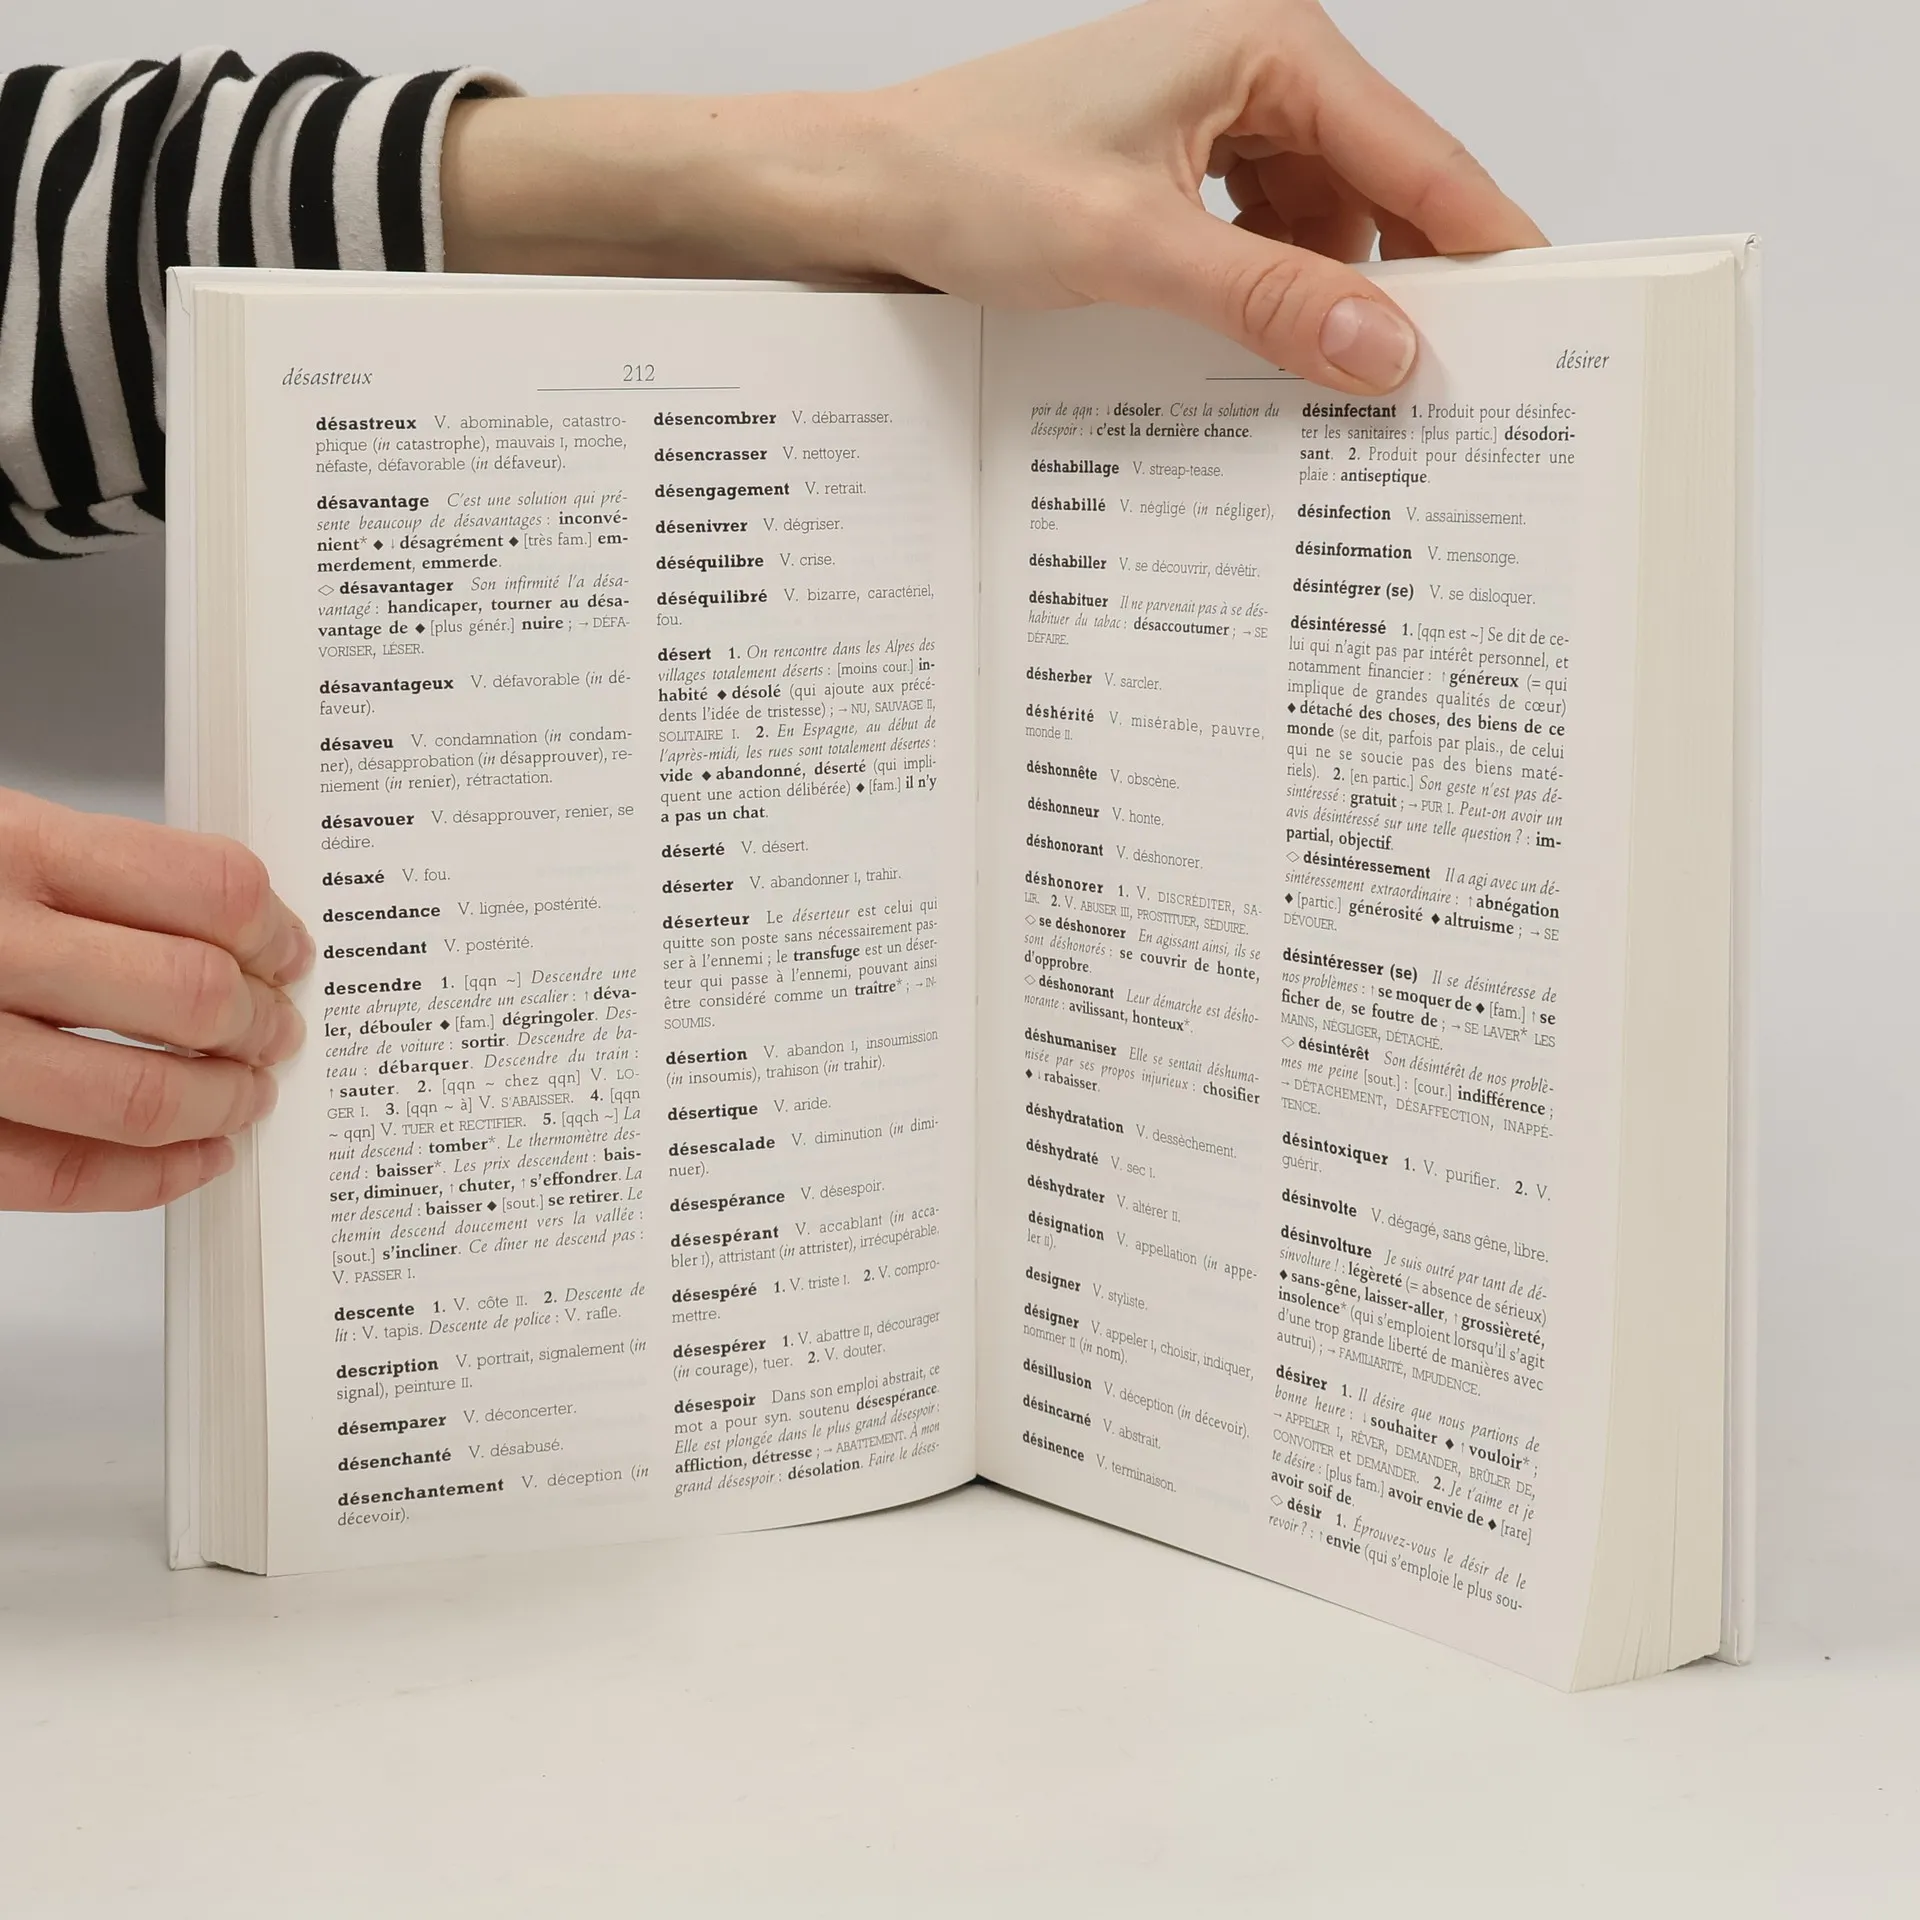 désastreux
212
désastreux V. abominable, catastro-
phique (in catastrophe), mauvais I, moche,
néfaste, défavorable (in défaveur).
désavantage C'est une solution qui pré-
sente beaucoup de désavantages : inconvé-
nient* ◆ ↓ désagrément ◆ [très fam.] em-
merdement, emmerde.
◇ désavantager Son infirmité l'a désa-
vantagé : handicaper, tourner au désa-
vantage de ◆ [plus génér.] nuire ; → DÉFA-
VORISER, LÉSER.
désavantageux V. défavorable (in dé-
faveur).
désaveu V. condamnation (in condam-
ner), désapprobation (in désapprouver), re-
niement (in renier), rétractation.
désavouer V. désapprouver, renier, se
dédire.
désaxé V. fou.
descendance V. lignée, postérité.
descendant V. postérité.
descendre 1. [qqn ~] Descendre une
pente abrupte, descendre un escalier : ↑ déva-
ler, débouler ◆ [fam.] dégringoler. Des-
cendre de voiture : sortir. Descendre de ba-
teau : débarquer. Descendre du train :
↑ sauter. 2. [qqn ~ chez qqn] V. LO-
GER I. 3. [qqn ~ à] V. S'ABAISSER. 4. [qqn
~ qqn] V. TUER et RECTIFIER. 5. [qqch ~] La
nuit descend : tomber*. Le thermomètre des-
cend : baisser*. Les prix descendent : bais-
ser, diminuer, ↑ chuter, ↑ s'effondrer. La
mer descend : baisser ◆ [sout.] se retirer. Le
chemin descend doucement vers la vallée :
[sout.] s'incliner. Ce dîner ne descend pas :
V. PASSER I.
descente 1. V. côte II. 2. Descente de
lit : V. tapis. Descente de police : V. rafle.
description V. portrait, signalement (in
signal), peinture II.
désemparer V. déconcerter.
désenchanté V. désabusé.
désenchantement V. déception (in
décevoir).
désencombrer V. débarrasser.
désencrasser V. nettoyer.
désengagement V. retrait.
désenivrer V. dégriser.
déséquilibre V. crise.
déséquilibré V. bizarre, caractériel,
fou.
désert 1. On rencontre dans les Alpes des
villages totalement déserts : [moins cour.] in-
habité ◆ désolé (qui ajoute aux précé-
dents l'idée de tristesse) ; → NU, SAUVAGE II,
SOLITAIRE I. 2. En Espagne, au début de
l'après-midi, les rues sont totalement désertes :
vide ◆ abandonné, déserté (qui impli-
quent une action délibérée) ◆ [fam.] il n'y
a pas un chat.
déserté V. désert.
déserter V. abandonner I, trahir.
déserteur Le déserteur est celui qui
quitte son poste sans nécessairement pas-
ser à l'ennemi ; le transfuge est un déser-
teur qui passe à l'ennemi, pouvant ainsi
être considéré comme un traître* ; → IN-
SOUMIS.
désertion V. abandon I, insoumission
(in insoumis), trahison (in trahir).
désertique V. aride.
désescalade V. diminution (in dimi-
nuer).
désespérance V. désespoir.
désespérant V. accablant (in acca-
bler I), attristant (in attrister), irrécupérable.
désespéré 1. V. triste I. 2. V. compro-
mettre.
désespérer 1. V. abattre II, décourager
(in courage), tuer. 2. V. douter.
désespoir Dans son emploi abstrait, ce
mot a pour syn. soutenu désespérance.
Elle est plongée dans le plus grand désespoir :
affliction, détresse ; → ABATTEMENT. À mon
grand désespoir : désolation. Faire le déses-
désirer
poir de qqn : ↓ désoler. C'est la solution du
désespoir : ↓ c'est la dernière chance.
déshabillage V. streap-tease.
déshabillé V. négligé (in négliger),
robe.
déshabiller V. se découvrir, dévêtir.
déshabituer Il ne parvenait pas à se dés-
habituer du tabac : désaccoutumer ; → SE
DÉFAIRE.
désherber V. sarcler.
déshérité V. misérable, pauvre,
monde II.
déshonnête V. obscène.
déshonneur V. honte.
déshonorant V. déshonorer.
déshonorer 1. V. DISCRÉDITER, SA-
LIR. 2. V. ABUSER III, PROSTITUER, SÉDUIRE.
◇ se déshonorer En agissant ainsi, ils se
sont déshonorés : se couvrir de honte,
d'opprobre.
◇ déshonorant Leur démarche est désho-
norante : avilissant, honteux*.
déshumaniser Elle se sentait déshuma-
nisée par ses propos injurieux : chosifier
◆ ↓ rabaisser.
déshydratation V. dessèchement.
déshydraté V. sec I.
déshydrater V. altérer II.
désignation V. appellation (in appe-
ler II).
designer V. styliste.
désigner V. appeler I, choisir, indiquer,
nommer II (in nom).
désillusion V. déception (in décevoir).
désincarné V. abstrait.
désinence V. terminaison.
désinfectant 1. Produit pour désinfec-
ter les sanitaires : [plus partic.] désodori-
sant. 2. Produit pour désinfecter une
plaie : antiseptique.
désinfection V. assainissement.
désinformation V. mensonge.
désintégrer (se) V. se disloquer.
désintéressé 1. [qqn est ~] Se dit de ce-
lui qui n'agit pas par intérêt personnel, et
notamment financier : ↑ généreux (= qui
implique de grandes qualités de cœur)
◆ détaché des choses, des biens de ce
monde (se dit, parfois par plais., de celui
qui ne se soucie pas des biens maté-
riels). 2. [en partic.] Son geste n'est pas dé-
sintéressé : gratuit ; → PUR I. Peut-on avoir un
avis désintéressé sur une telle question ? : im-
partial, objectif.
◇ désintéressement Il a agi avec un dé-
sintéressement extraordinaire : ↑ abnégation
◆ [partic.] générosité ◆ altruisme ; → SE
DÉVOUER.
désintéresser (se) Il se désintéresse de
nos problèmes : ↑ se moquer de ◆ [fam.] ↑ se
ficher de, se foutre de ; → SE LAVER* LES
MAINS, NÉGLIGER, DÉTACHÉ.
◇ désintérêt Son désintérêt de nos problè-
mes me peine [sout.] : [cour.] indifférence ;
→ DÉTACHEMENT, DÉSAFFECTION, INAPPÉ-
TENCE.
désintoxiquer 1. V. purifier. 2. V.
guérir.
désinvolte V. dégagé, sans gêne, libre.
désinvolture Je suis outré par tant de dé-
sinvolture ! : légèreté (= absence de sérieux)
◆ sans-gêne, laisser-aller, ↑ grossièreté,
insolence* (qui s'emploient lorsqu'il s'agit
d'une trop grande liberté de manières avec
autrui) ; → FAMILIARITÉ, IMPUDENCE.
désirer 1. Il désire que nous partions de
bonne heure : ↓ souhaiter ◆ ↑ vouloir* ;
→ APPELER I, RÊVER, DEMANDER, BRÛLER DE,
CONVOITER et DEMANDER. 2. Je t'aime et je
te désire : [plus fam.] avoir envie de ◆ [rare]
avoir soif de.
◇ désir 1. Éprouvez-vous le désir de le
revoir ? : ↑ envie (qui s'emploie le plus sou-